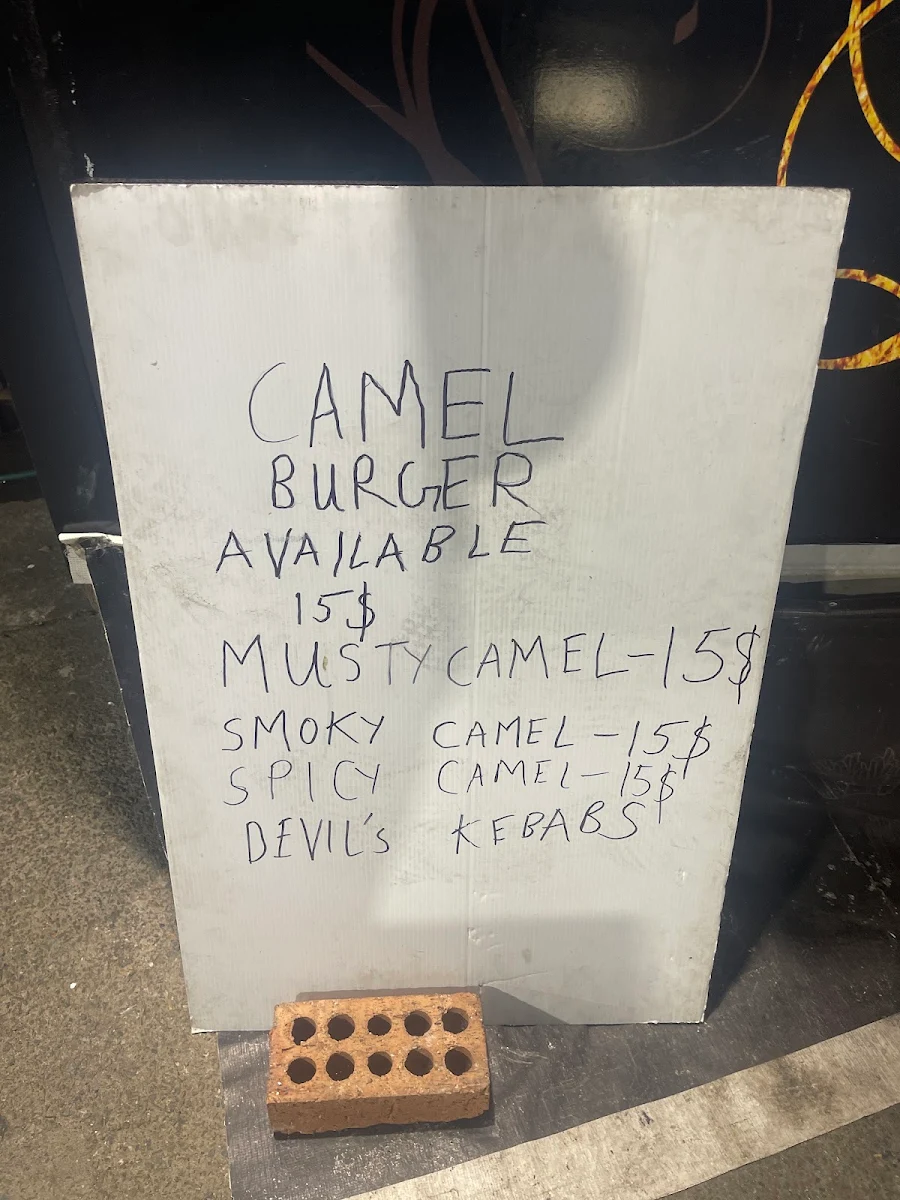 CAMEL
BURGER
AVAILABLE
15$
MUSTY CAMEL-15$
SMOKY CAMEL-15$
SPICY CAMEL-15$
DEVIL's KEBABS